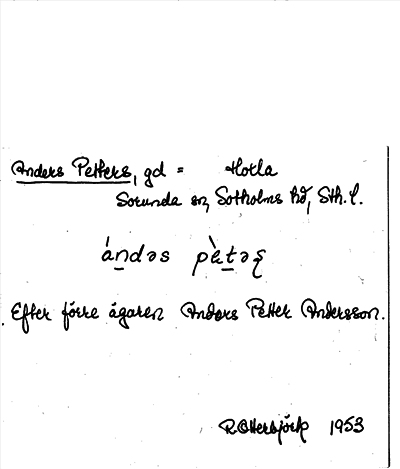 Anders Petters, gd = Hoxla
Sorunda sn, Sotholms hd, Sth. l.
ándəs pètəʂ
Efter förre ägaren Anders Petter Andersson.
R Otterbjörk 1953